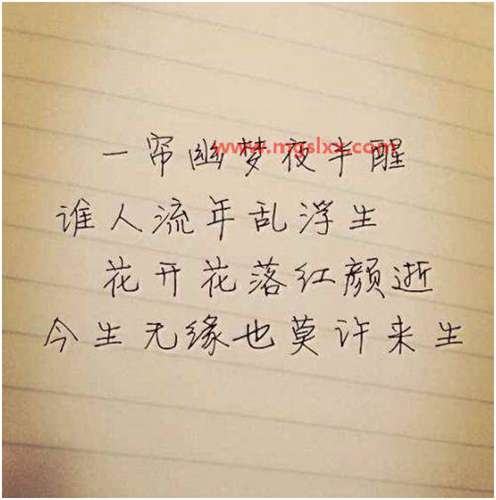 www.mgslxx.com
一帘幽梦夜半醒
谁人流年乱浮生
花开花落红颜逝
今生无缘也莫许来生